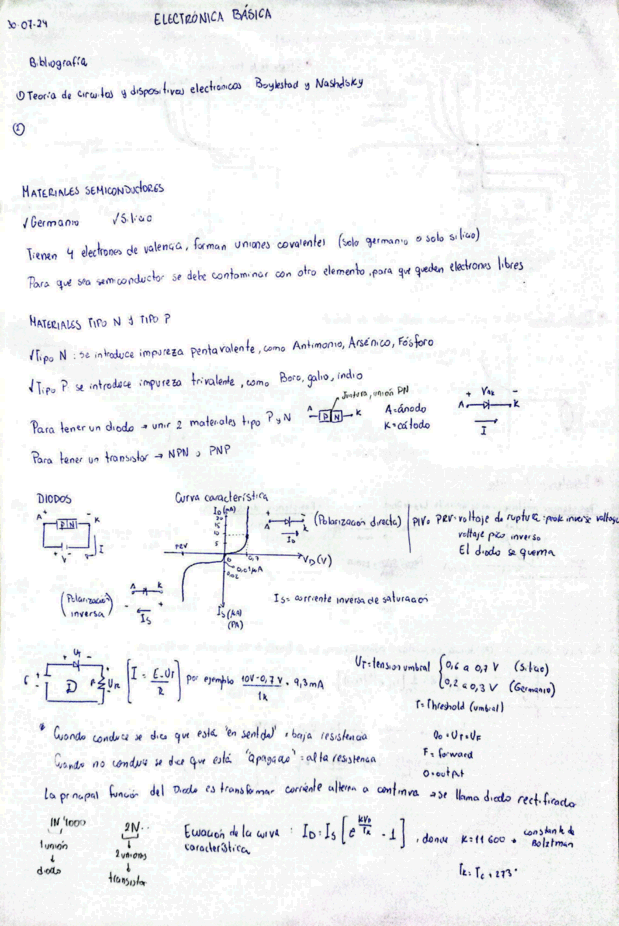 30-07-24
ELECTRÓNICA BÁSICA
Bibliografía
① Teoría de circuitos y dispositivos electronicos Boylestad y Nashelsky
②
MATERIALES SEMICONDUCTORES
√Germanio √Silicio
Tienen 4 electrones de valencia, forman uniones covalentes (solo germanio o solo silicio)
Para que sea semiconductor se debe contaminar con otro elemento, para que queden electrones libres
MATERIALES TIPO N Y TIPO P
√Tipo N : se introduce impureza pentavalente, como Antimonio, Arsénico, Fósforo
√Tipo P se introduce impureza trivalente, como Boro, galio, indio
Juntura, unión PN
Para tener un diodo → unir 2 materiales tipo P y N
A P N K
A=ánodo
K=cátodo
+ -
A K
I
Para tener un transistor → NPN o PNP
DIODOS
Curva característica
A + P N - K
V
I
I_D (mA)
20
15
10
5
PRV
0
0,7
V_D (V)
I_S (µA)
(PA)
A + - K
I_D
(Polarización directa)
PIV o PRV: voltaje de ruptura: peak inverse voltage
voltaje pico inverso
El diodo se quema
(Polarización inversa)
A K
- +
I_S
I_S = corriente inversa de saturación
+ U_T -
D
R
U_R
[I = (E-U_T)/R] por ejemplo (10V-0,7V)/1k = 9,3mA
U_T = tensión umbral {0,6 a 0,7 V (Silicio)
0,2 a 0,3 V (Germanio)
T = Threshold (umbral)
* Cuando conduce se dice que está "encendido" = baja resistencia
Cuando no conduce se dice que está "apagado" = alta resistencia
U_T = U_F
F = forward
O = output
La principal función del Diodo es transformar corriente alterna a continua → se llama diodo rectificado
1N 4000
1 unión
↓
diodo
2N..
2 uniones
↓
transistor
Ecuación de la curva característica : I_D = I_S [e^(KV_D/T_K) - 1] , donde K = 11 600 → constante de Bolztman
T_K = T_C + 273°